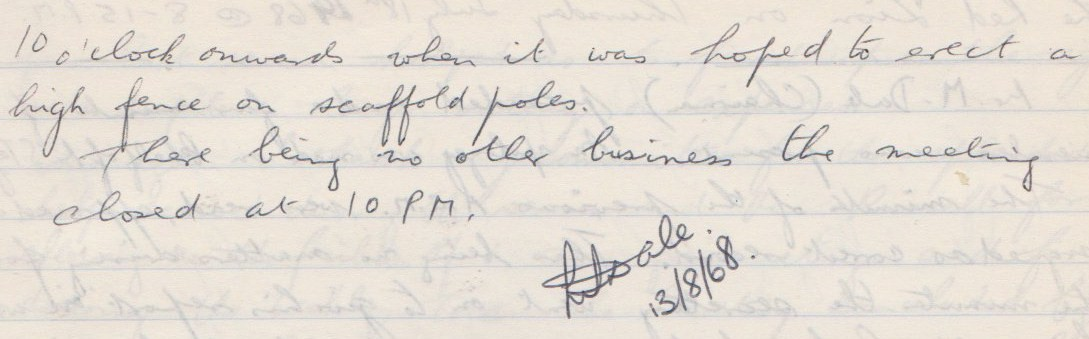 10 o'clock onwards when it was hoped to erect a
high fence on scaffold poles.
There being no other business the meeting
closed at 10 PM.
Dale.
13/8/68.